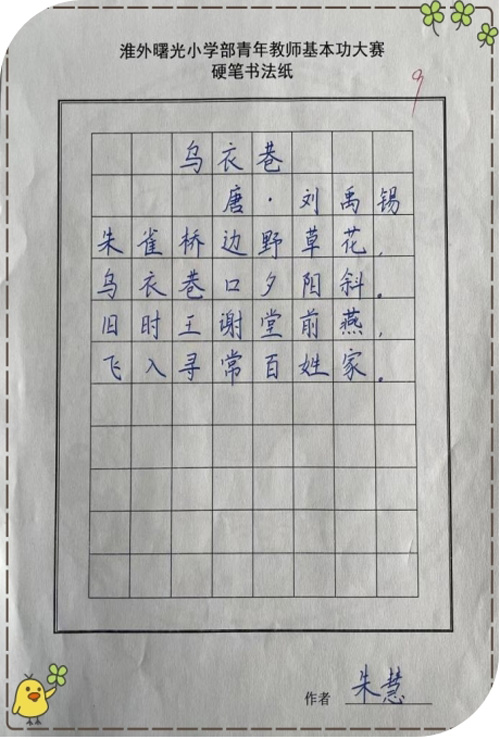 淮外曙光小学部青年教师基本功大赛
硬笔书法纸
9
乌衣巷
唐·刘禹锡
朱雀桥边野草花,
乌衣巷口夕阳斜。
旧时王谢堂前燕,
飞入寻常百姓家。
作者 朱慧